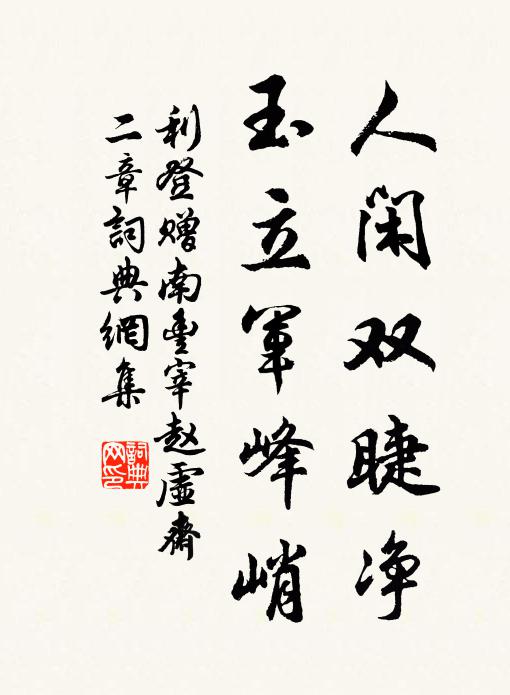 人闲双睫净
玉立軍峰峭
利登赠南豐宰赵虚齋
二章詞典網集
詞典网印